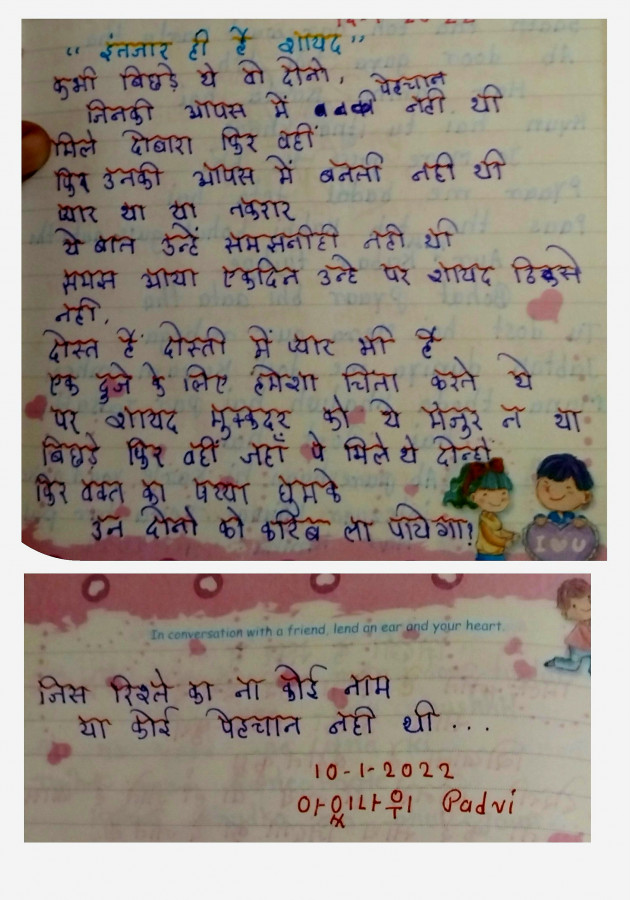 “ इंतजार ही है शायद ”
कभी बिछड़े थे वो दोनो, पेहचान
जिनकी आपस में नही थी
मिले दोबारा फिर वहीं
फिर उनकी आपस में बनती नही थी
प्यार था या तकरार
ये बात उन्हें समझनीही नही थी
समझ आया एकदिन उन्हे पर शायद ठिकसे
नही,
दोस्त है दोस्ती में प्यार भी है
एक दुजे के लिए हमेशा चिंता करते थे
पर शायद मुक्कदर को ये मंजुर न था
बिछड़े फिर वहीं जहाँ पे मिले थे दोन्हो
फिर वक्त का पय्या घुमके
उन दोनो को करिब ला पायेगा?
I ♥ U
In conversation with a friend, lend an ear and your heart.
जिस रिश्ते का ना कोई नाम
या कोई पेहचान नही थी ...
10-1-2022
Padvi